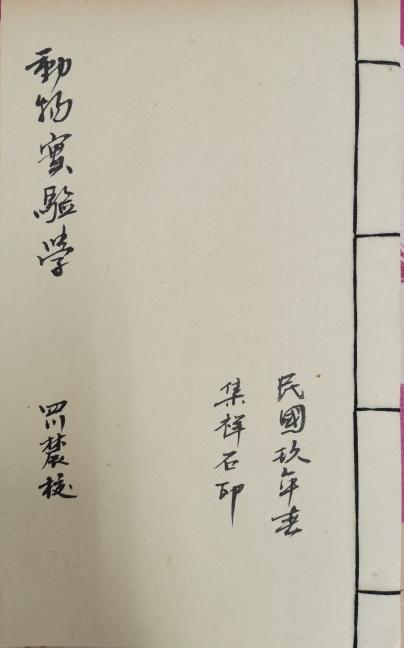 民國玖年春
集祥石印
動物實驗学
四川農校